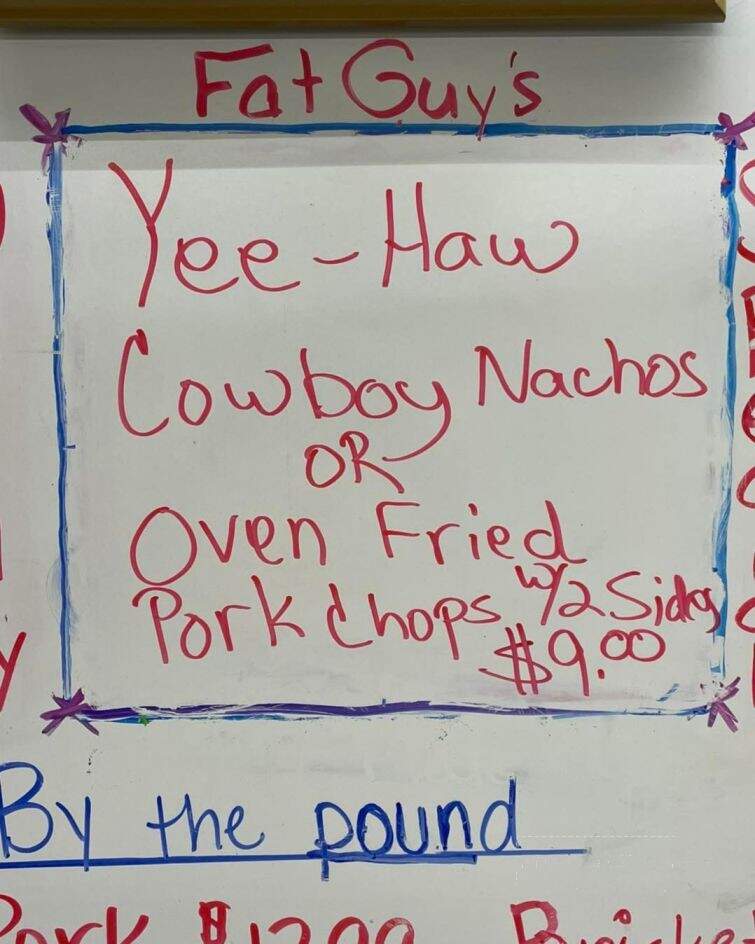 Fat Guy's
Yee-Haw
Cowboy Nachos
OR
Oven Fried
Pork Chops w/2 Sides
$9.00
By the pound
Pork $12.99